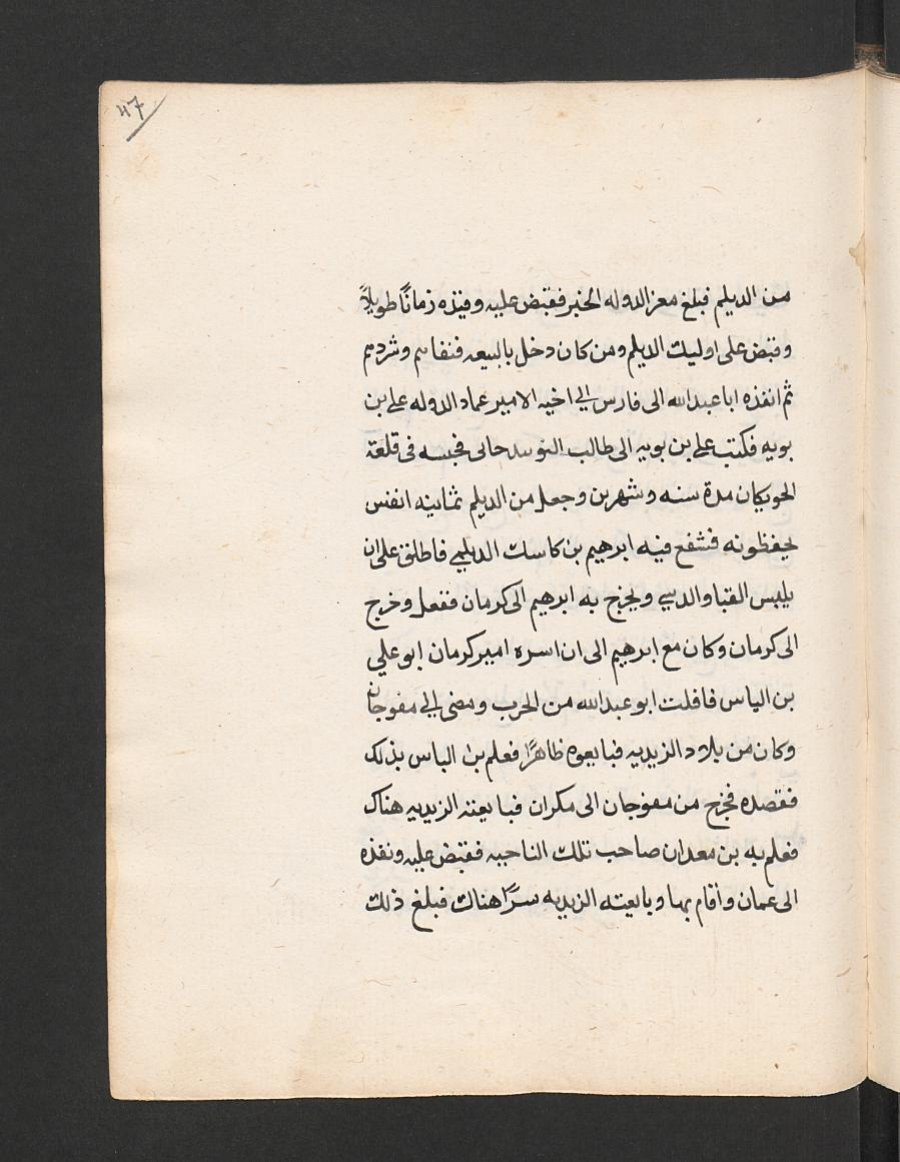 47
من الديلم فبلغ معز الدوله الخبر فقبض عليه وقيده زمانًا طويلًا
وقبض على اوليك الديلم ومن كان دخل بالبيعه فنفاهم وشردهم
ثم انفذه ابا عبدالله الى فارس الي اخيه الامير عماد الدوله علي بن
بويه فكتب علي بن بويه الى طالب النوبندجانى فحبسه فى قلعة
مدة سنه وشهرين وجعل من الديلم ثمانيه انفس
يحفظونه فشفع فيه ابرهيم بن كاسك الديلمي فاطلق على ان
يلبس القبا والدبي ويخرج به ابرهيم الى كرمان ففعل وخرج
الى كرمان وكان مع ابرهيم الى ان اسره امير كرمان ابو علي
بن الياس فافلت ابو عبدالله من الحرب ومضى الي منوجان
وكان من بلاد الزيديه فبايعوه ظاهرًا فعلم بن الياس بذلك
فقصده فخرج من منوجان الى مكران فبايعته الزيديه هناك
فعلم به بن معدان صاحب تلك الناحيه فقبض عليه ونفذه
الى عمان واقام بها وبايعته الزيديه سرًا هناك فبلغ ذلك